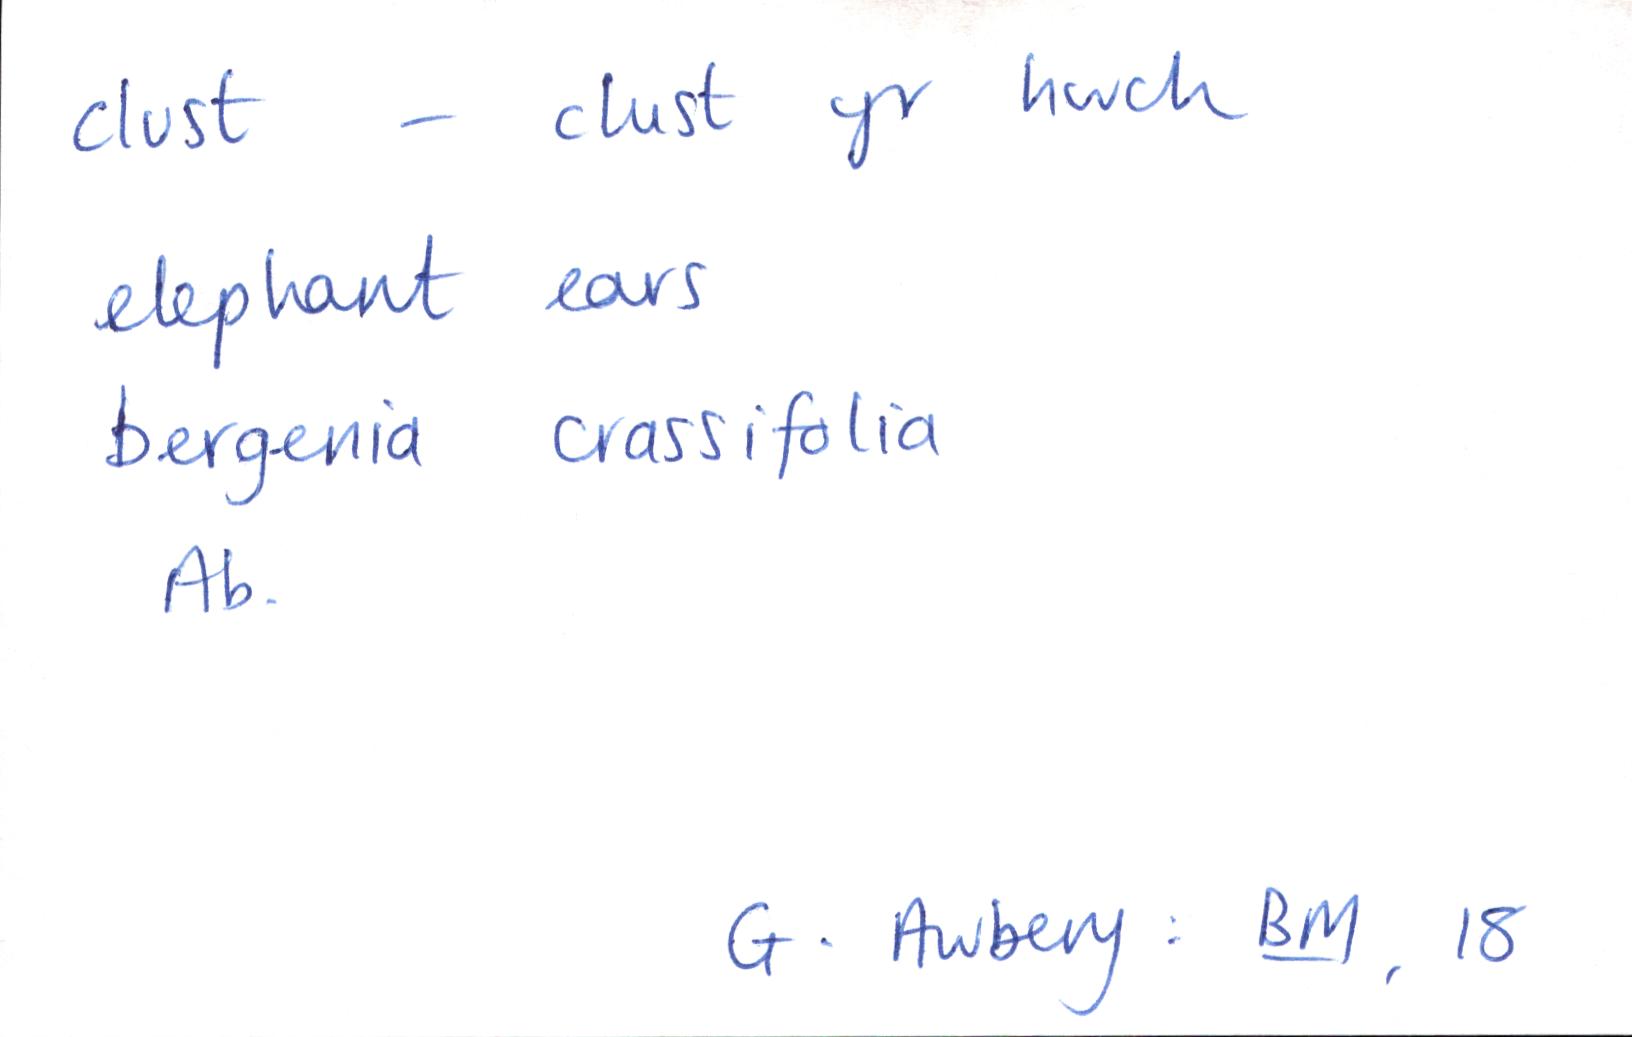 clust – clust yr hwch
elephant ears
bergenia crassifolia
Ab.
G. Awbery: BM, 18